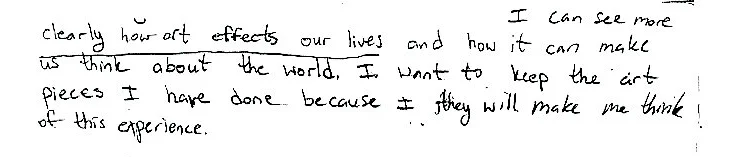 I can see more
clearly how art effects our lives and how it can make
us think about the world. I want to keep the art
pieces I have done because I they will make me think
of this experience.